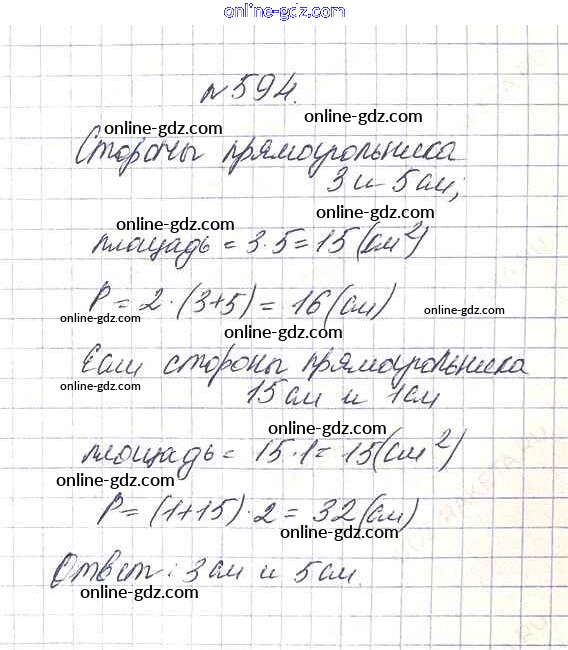 online-gdz.com
№594.
online-gdz.com online-gdz.com
Стороны прямоугольника
3 и 5 см;
online-gdz.com online-gdz.com
площадь = 3·5=15 (см²)
P = 2·(3+5) = 16 (см)
online-gdz.com online-gdz.com online-gdz.com
Если стороны прямоугольника
online-gdz.com
15 см и 1 см
online-gdz.com
площадь = 15·1=15 (см²)
online-gdz.com
P = (1+15)·2 = 32 (см)
online-gdz.com
Ответ: 3 см и 5 см.
online-gdz.com
online-gdz.com